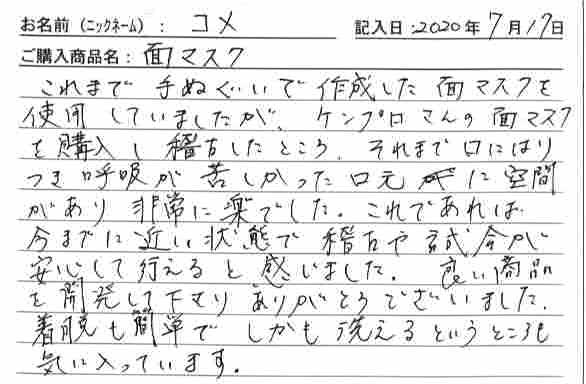 お名前（ニックネーム）： コメ 記入日：2020年7月17日
ご購入商品名：面マスク
これまで手ぬぐいで作成した面マスクを
使用していましたが、ケンプロさんの面マスク
を購入し稽古したところ、それまで口にはり
つき呼吸が苦しかった口元に空間
があり非常に楽でした。これであれば
今までに近い状態で稽古や試合が
安心して行えると感じました。良い商品
を開発して下さりありがとうございました。
着脱も簡単でしかも洗えるというところも
気に入っています。